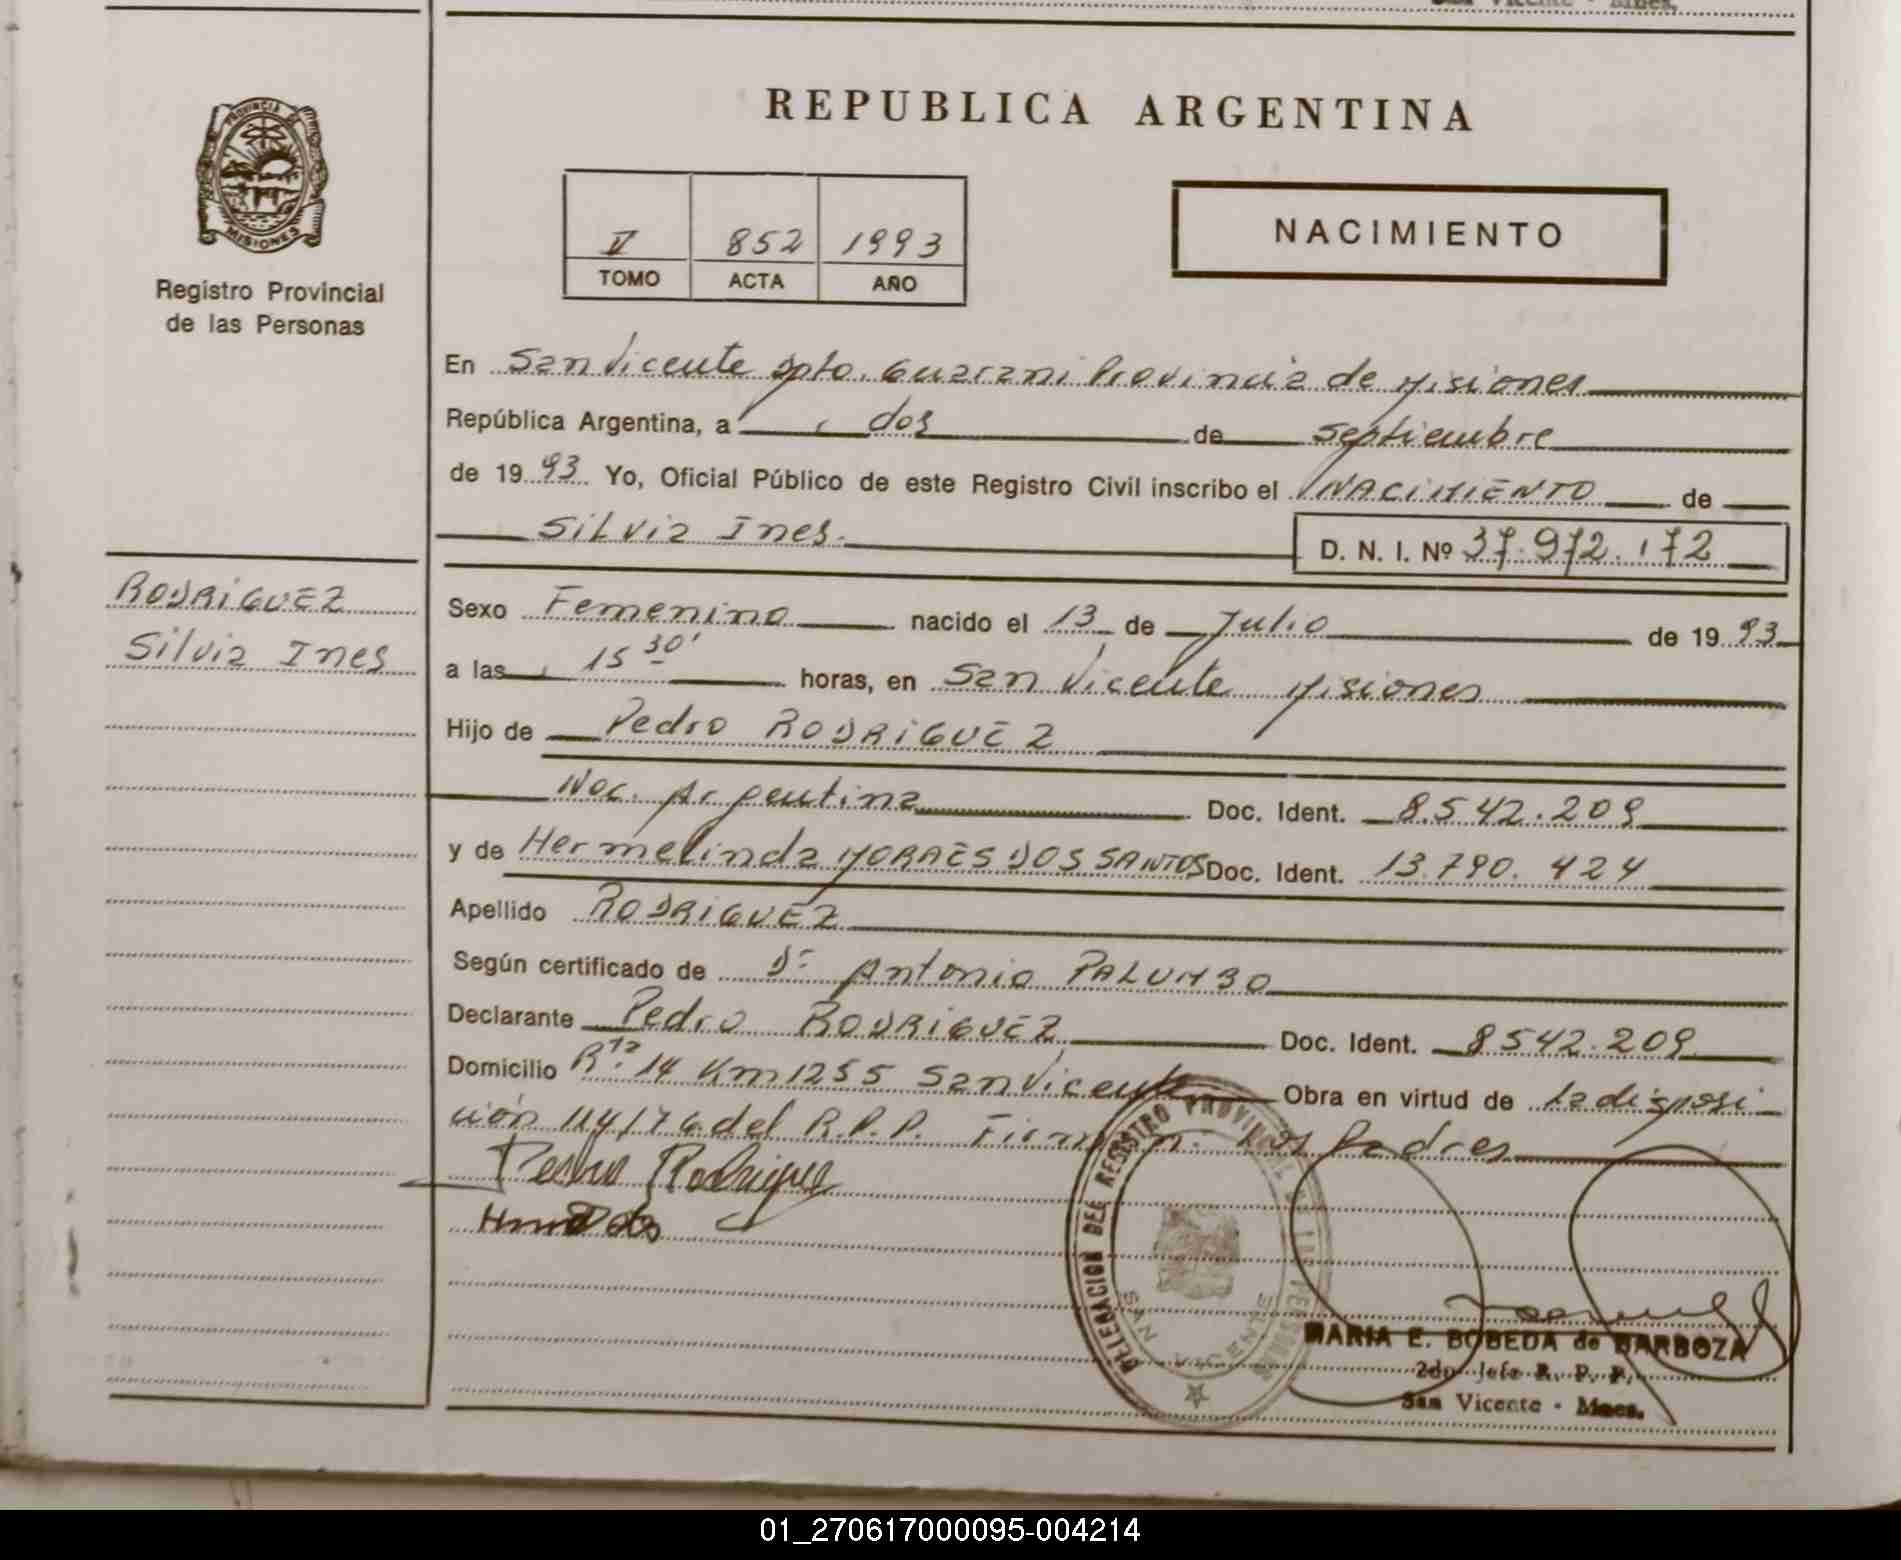 San Vicente - Mnes.
PROVINCIA DE
MISIONES
Registro Provincial
de las Personas
RODRIGUEZ
Silvia Ines
REPUBLICA ARGENTINA
V 852 1993
TOMO ACTA AÑO
NACIMIENTO
En San Vicente Dpto. Guarani Provincia de Misiones
República Argentina, a dos de Septiembre
de 1993 Yo, Oficial Público de este Registro Civil inscribo el NACIMIENTO de
Silvia Ines. D. N. I. Nº 37.972.172
Sexo Femenino nacido el 13 de Julio de 1993
a las 15 30' horas, en San Vicente Misiones
Hijo de Pedro RODRIGUEZ
Nac. Argentina Doc. Ident. 8.542.209
y de Hermelinda MORAES DOS SANTOS Doc. Ident. 13.790.424
Apellido RODRIGUEZ
Según certificado de Dr Antonio PALUMBO
Declarante Pedro RODRIGUEZ Doc. Ident. 8542.209
Domicilio Rta. 14 Km 1255 San Vicente Obra en virtud de la disposi
ción 114/76 del R.P.P. Firman los Padres
Pedro Rodriguez
DELEGACION DEL REGISTRO PROVINCIAL DE LAS PERSONAS
SAN VICENTE
MARIA E. BOBEDA de BARBOZA
2do Jefe R. P. P.
San Vicente - Mnes.
01_270617000095-004214